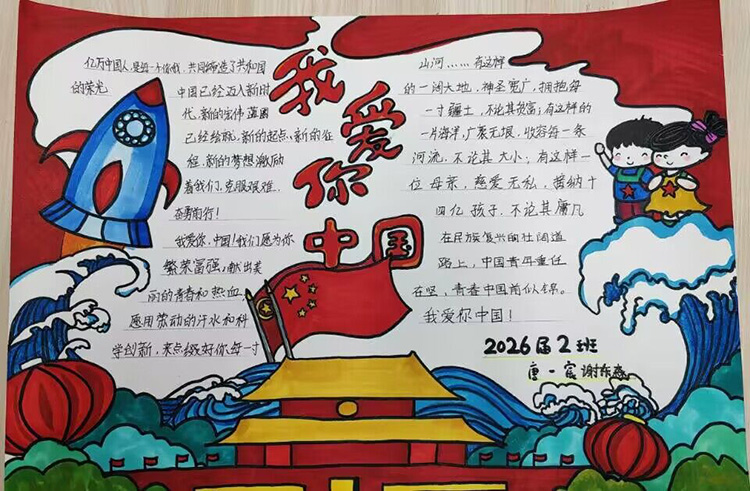 我爱你
中国
亿万中国人,是每一个你我,共同缔造了共和国
的荣光
中国已经迈入新时
代,新的宏伟蓝图
已经绘就,新的起点、新的征
程,新的梦想激励
着我们,克服艰难,
奋勇前行!
我爱你,中国!我们愿为你
繁荣富强,献出美
丽的青春和热血
愿用劳动的汗水和科
学创新,来点缀好你每一寸
山河……有这样
的一阔大地,神圣宽广,拥抱每
一寸疆土,不论其贫富;有这样的
一片海洋,广袤无垠,收容每一条
河流,不论其大小;有这样一
位母亲,慈爱无私,接纳十
四亿孩子,不论其庸凡
在民族复兴的壮阔道
路上,中国青年重任
在坚,青春中国前似锦。
我爱你中国!
2026届2班
唐一宸 谢东